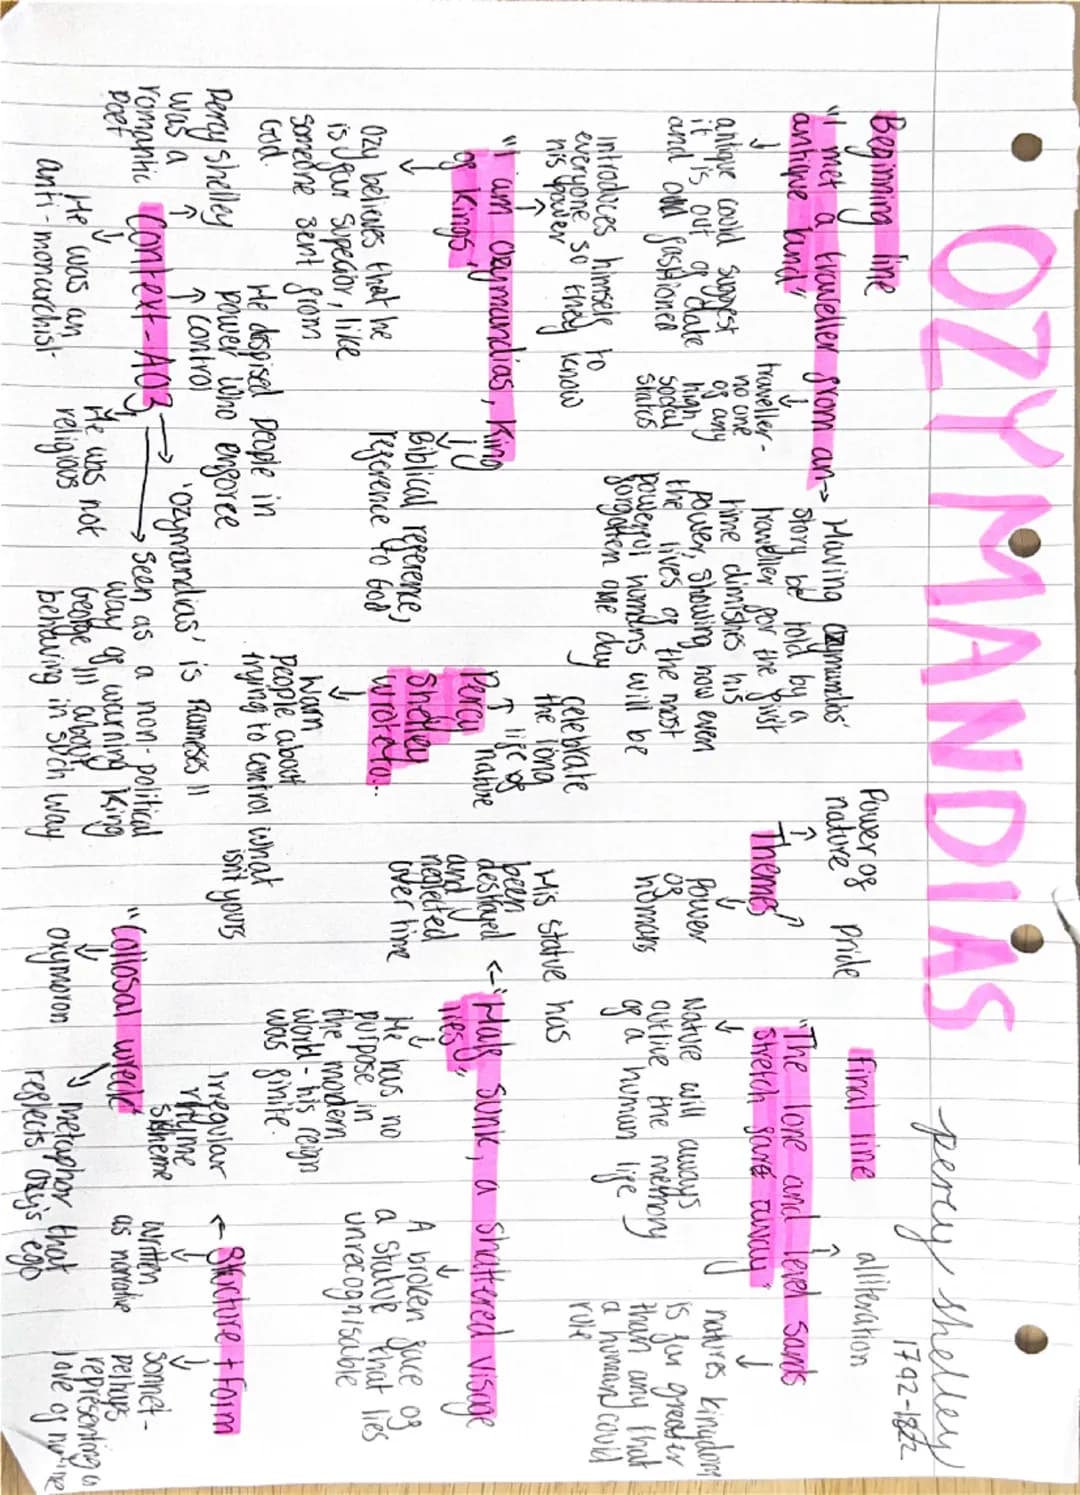 OZYMANDIAS
percy shelley
1792-1822
Beginning line
"I met a traveller from an
antique land"
antique could suggest
it is out of date
and old fashioned
traveller-
no one
of any
high
social
status
Having ozymandias'
story be told by a
traveller for the first
time diminishes his
power, showing how even
the lives of the most
powerful humans will be
forgotten one day
Power of
nature
Pride
Themes
Power
of
humans
final line
alliteration
"The lone and level sands
stretch far away"
Nature will always
outlive the memory
of a human life
natures kingdom
is far greater
than any that
a human could
rule
Introduces himself to
everyone so they know
his power
"I am ozymandias, King
of Kings"
Ozy believes that he
is far superior, like
someone sent from
God.
Biblical reference,
reference to God
celebrate
the long
life of
nature
Percy
Shelley
wrote to...
Warn
people about
trying to control what
isn't yours
His statue has
been
destroyed
and
neglected
over time
"Half sunk, a shattered visage
lies"
He has no
purpose in
the mordern
world - his reign
was finite.
A broken face of
a statue that lies
unrecognisable
Percy Shelley
was a
romantic
poet
He despised people in
power who enforce
control
Context - AO3
He was an
anti-monarchist
He was not
religious
'Ozymandias' is Rameses II
Seen as a non-political
way of warning King
George III about
behaving in such way
"Collosal wreck"
oxymoron
metaphor that
reflects Ozy's ego
Structure + form
Irregular
rhyme
scheme
written
as narrative
sonnet-
perhaps
representing a
love of nature